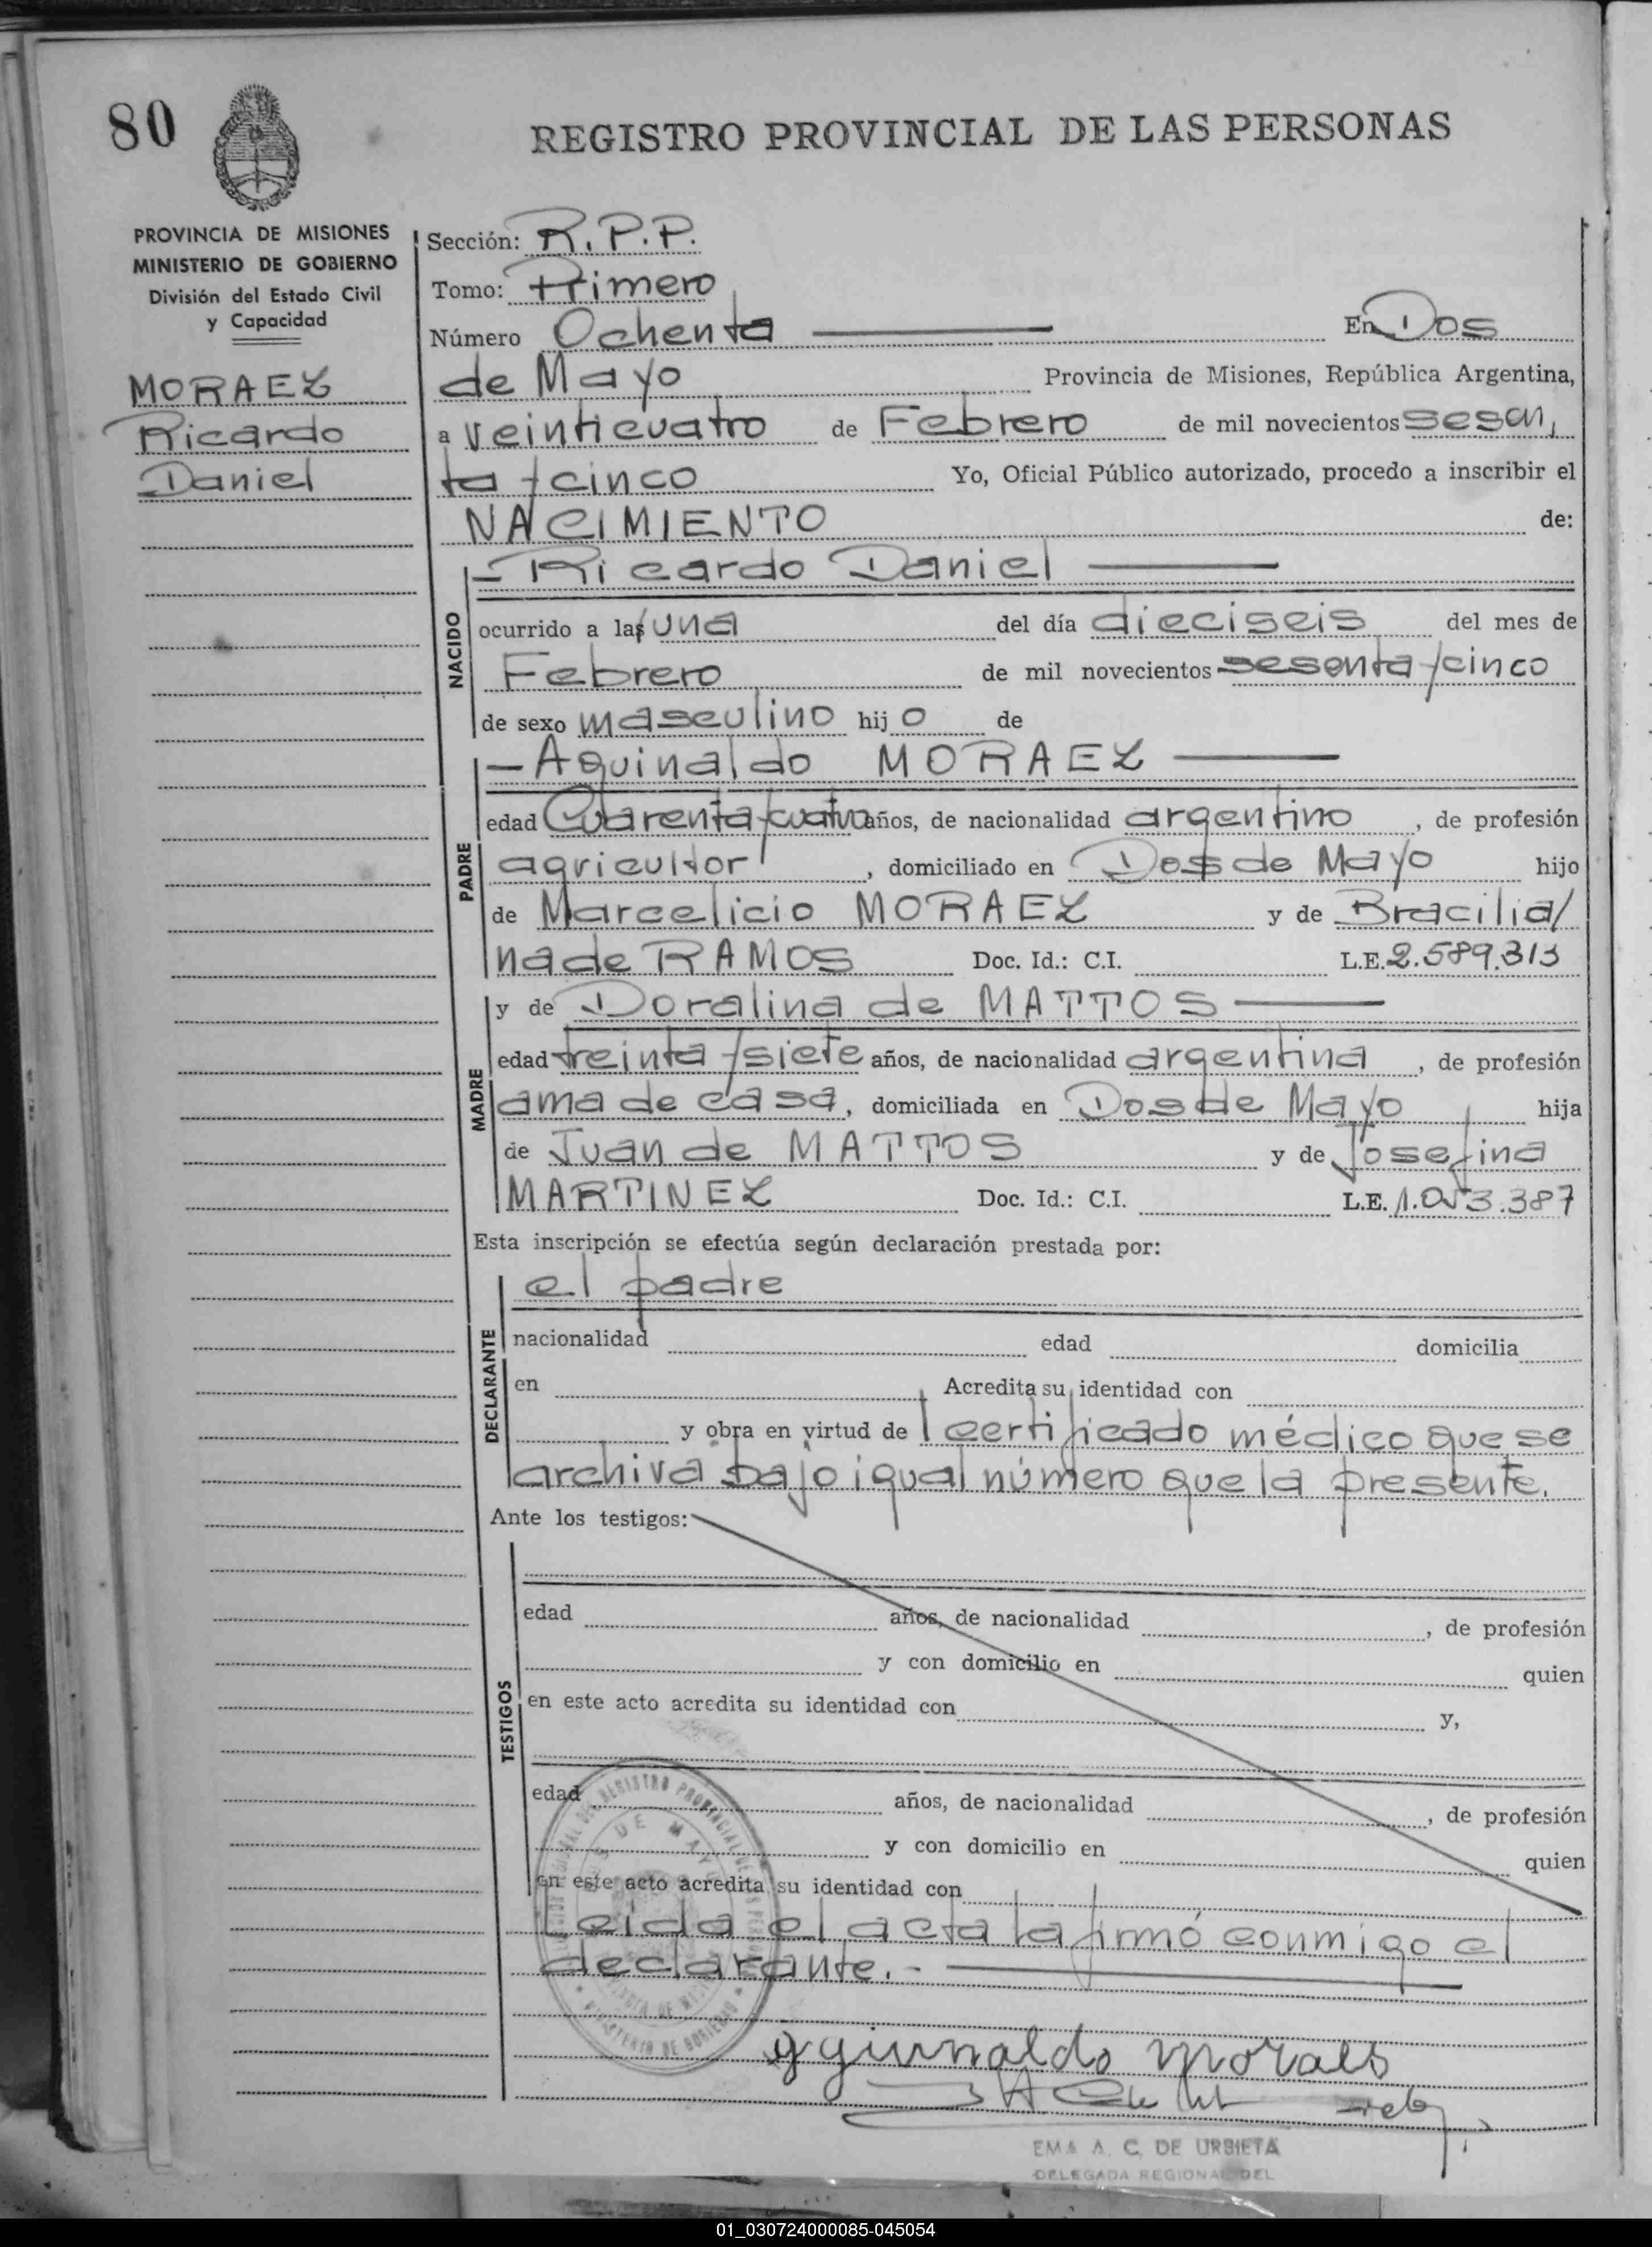 80
REGISTRO PROVINCIAL DE LAS PERSONAS
PROVINCIA DE MISIONES
MINISTERIO DE GOBIERNO
División del Estado Civil
y Capacidad
MORAEZ
Ricardo
Daniel
Sección: R.P.P.
Tomo: Primero
Número Ochenta En Dos
de Mayo Provincia de Misiones, República Argentina,
a veinticuatro de Febrero de mil novecientos sesen,
ta y cinco Yo, Oficial Público autorizado, procedo a inscribir el
NACIMIENTO de:
NACIDO
- Ricardo Daniel
ocurrido a las una del día dieciseis del mes de
Febrero de mil novecientos sesenta y cinco
de sexo masculino hijo de
PADRE
- Aguinaldo MORAEZ
edad Cuarenta y cuatro años, de nacionalidad argentino, de profesión
agricultor, domiciliado en Dos de Mayo hijo
de Marcelicio MORAEZ y de Bracilia/
na de RAMOS Doc. Id.: C.I. L.E. 2.589.313
MADRE
y de Doralina de MATTOS
edad treinta y siete años, de nacionalidad argentina, de profesión
ama de casa, domiciliada en Dos de Mayo hija
de Juan de MATTOS y de Josefina
MARTINEZ Doc. Id.: C.I. L.E. 1.053.387
Esta inscripción se efectúa según declaración prestada por:
DECLARANTE
el padre
nacionalidad edad domicilia
en Acredita su identidad con
y obra en virtud de l certificado médico que se
archiva bajo igual número que la presente.
Ante los testigos:
TESTIGOS
edad años, de nacionalidad , de profesión
y con domicilio en quien
en este acto acredita su identidad con y,
edad años, de nacionalidad , de profesión
y con domicilio en quien
en este acto acredita su identidad con
Leída el acta la firmó conmigo el
declarante.-
aguinaldo moraes
EMA A. C. DE URBIETA
DELEGADA REGIONAL DEL
01_030724000085-045054